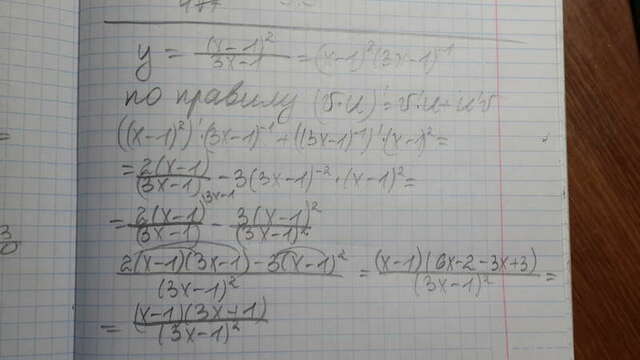 y = (x-1)²/(3x-1) = (x-1)²(3x-1)⁻¹
по правилу (v·u)' = v'u + u'v
((x-1)²)'·(3x-1)⁻¹ + ((3x-1)⁻¹)'·(x-1)² =
= 2(x-1)/(3x-1) - 3(3x-1)⁻²·(x-1)² =
3x-1
= 2(x-1)/(3x-1) - 3(x-1)²/(3x-1)²
(2(x-1)(3x-1) - 3(x-1)²)/(3x-1)² = (x-1)(6x-2-3x+3)/(3x-1)² =
= (x-1)(3x+1)/(3x-1)²